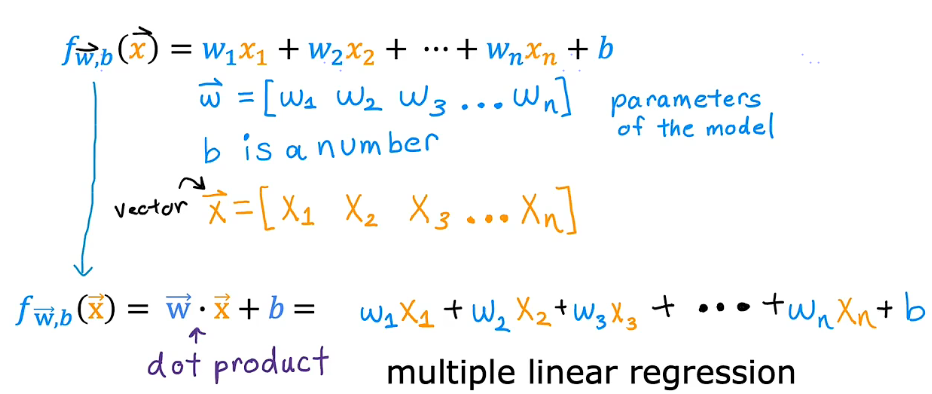 f_{w⃗,b}(x⃗) = w₁x₁ + w₂x₂ + ⋯ + wₙxₙ + b
w⃗ = [w₁ w₂ w₃ ... wₙ] parameters of the model
b is a number
vector x⃗ = [X₁ X₂ X₃ ... Xₙ]
f_{w⃗,b}(x⃗) = w⃗ · x⃗ + b = w₁X₁ + w₂X₂ + w₃X₃ + ... + wₙXₙ + b
dot product
multiple linear regression